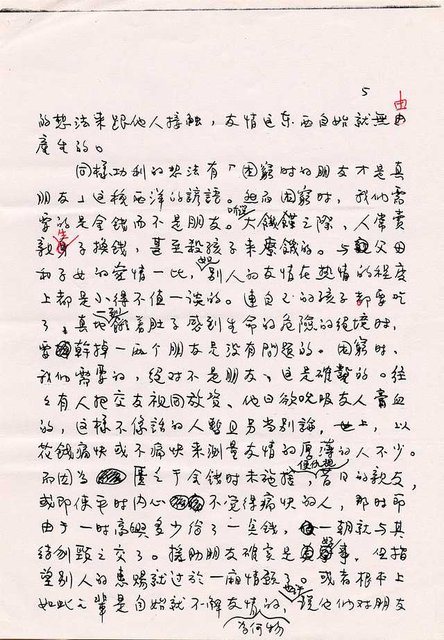 5
由
的想法来跟他人接触，友情这东西自始就無由
産生的。
同樣功利的想法有「困窮时的朋友才是真
朋友」这種西洋的諺語。但而困窮时，我们需
要的是金钱而不是朋友。听说大饑饉之際，人常賣
親生子換钱，甚至殺孩子来療饑的。与父母
和子女的爱情一比，别人的友情在热情的程度
上都是小得不值一谈的。連自己的孩子都要吃
了。真地餓着肚子感到生命的危险的绝境时，
需幹掉一两个朋友是没有問題的。困窮时、
我们需要的，绝对不是朋友、这是確實的。往
々有人把交友視同放资、他日欲吮吸友人膏血
的，这样不像話的人暫且另当别論，世上，以
花钱痛快或不痛快来測量友情的厚薄的人不少。
而因为匱乏于金钱时未施捨昔日的親友，
或即使平时内心不觉得痛快的人，那时却
由于一时高興多少给了一点钱，一朝就与其
结刎颈之交了。援助朋友確实是好事，但指
望别人的惠賜就过於一廂情願了。或者根本上
如此之輩是自始就不解友情的，他们对朋友
为何物